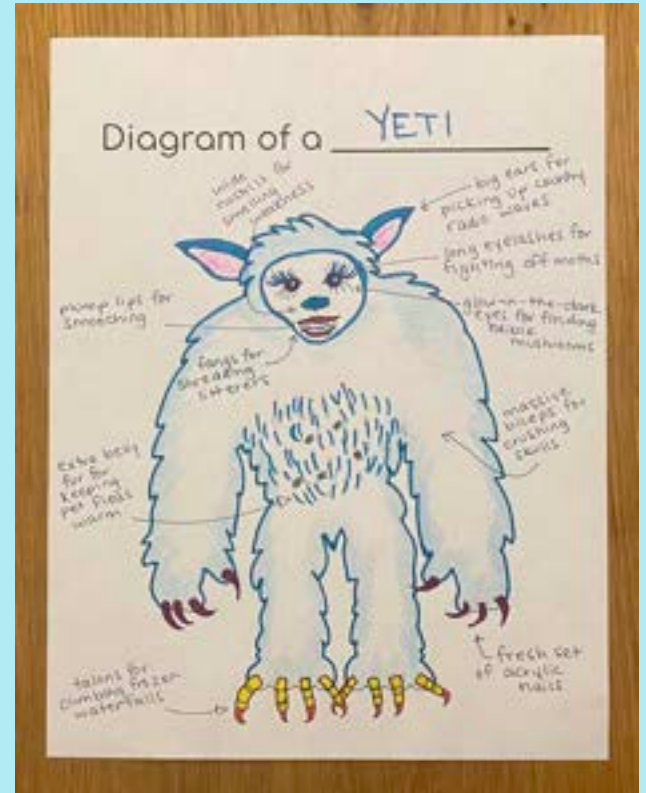 Diagram of a YETI
wide
nostrils for
smelling
weakness
big ears for
picking up country
radio waves
long eyelashes for
fighting off moths
plump lips for
smooching
glow-in-the-dark
eyes for finding
edible
mushrooms
fangs for
shredding
massive
biceps for
crushing
skulls
extra belly
fur for
keeping
pet fleas
warm
talons for
climbing frozen
waterfalls
fresh set
of acrylic
nails